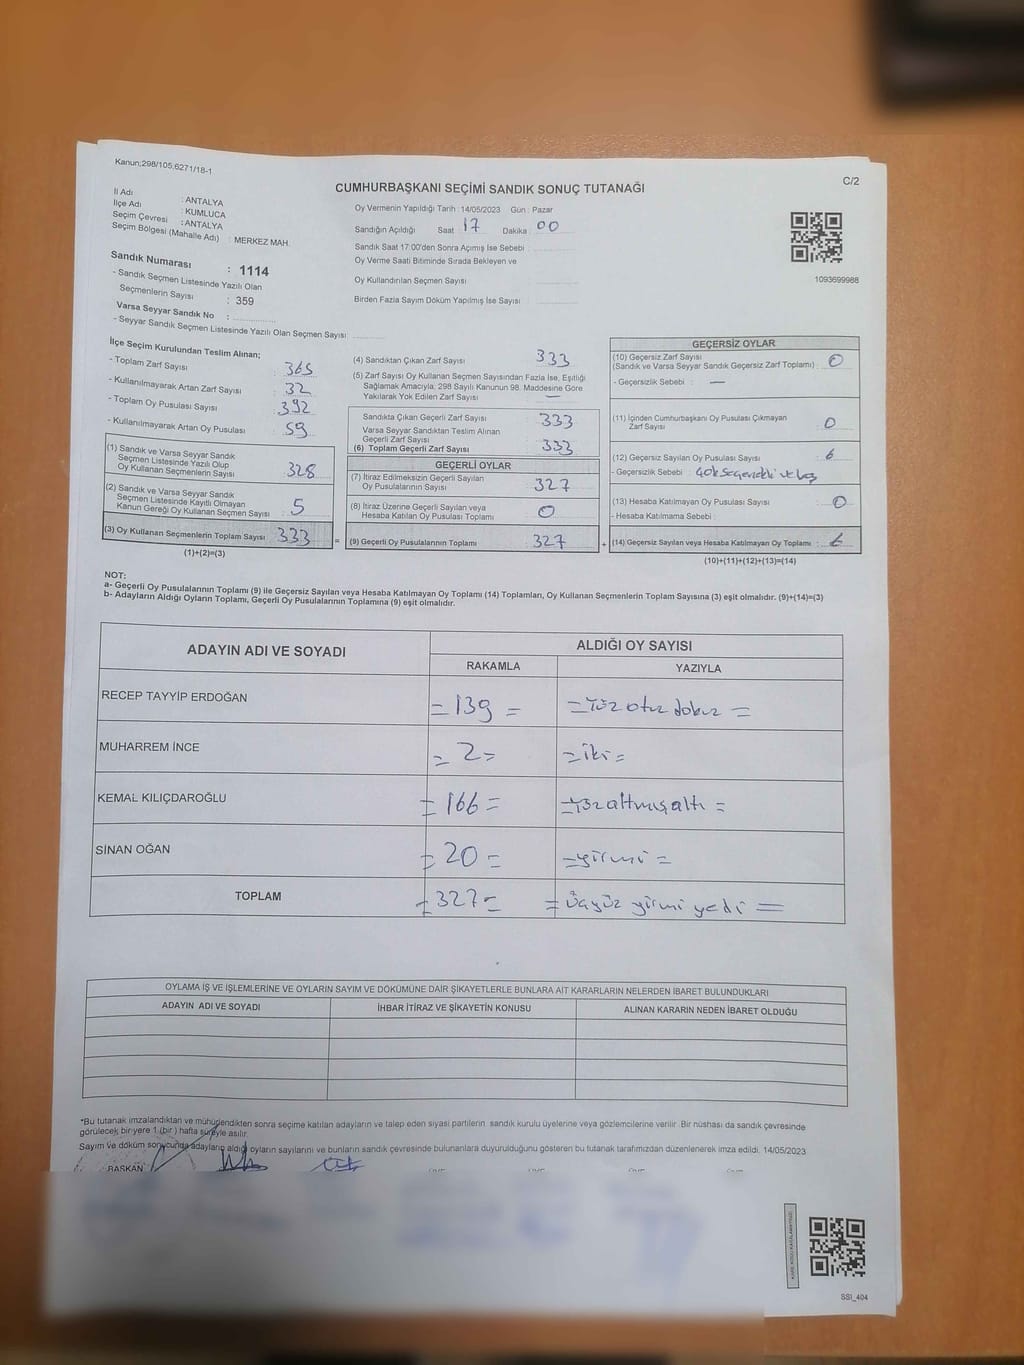 Kanun;298/105,6271/18-1
C/2
CUMHURBAŞKANI SEÇİMİ SANDIK SONUÇ TUTANAĞI
İl Adı : ANTALYA
İlçe Adı : KUMLUCA
Seçim Çevresi : ANTALYA
Seçim Bölgesi (Mahalle Adı) : MERKEZ MAH.
Oy Vermenin Yapıldığı Tarih :14/05/2023 Gün : Pazar
Sandığın Açıldığı Saat : 17 Dakika : 00
Sandık Saat 17:00'den Sonra Açımış İse Sebebi :
Oy Verme Saati Bitiminde Sırada Bekleyen ve
Oy Kullandırılan Seçmen Sayısı :
Birden Fazla Sayım Döküm Yapılmış İse Sayısı :
1093699988
Sandık Numarası : 1114
- Sandık Seçmen Listesinde Yazılı Olan
Seçmenlerin Sayısı : 359
Varsa Seyyar Sandık No :
- Seyyar Sandık Seçmen Listesinde Yazılı Olan Seçmen Sayısı :
İlçe Seçim Kurulundan Teslim Alınan;
- Toplam Zarf Sayısı : 365
- Kullanılmayarak Artan Zarf Sayısı : 32
- Toplam Oy Pusulası Sayısı : 392
- Kullanılmayarak Artan Oy Pusulası : 59
(1) Sandık ve Varsa Seyyar Sandık
Seçmen Listesinde Yazılı Olup
Oy Kullanan Seçmenlerin Sayısı : 328
(2) Sandık ve Varsa Seyyar Sandık
Seçmen Listesinde Kayıtlı Olmayan
Kanun Gereği Oy Kullanan Seçmen Sayısı : 5
(3) Oy Kullanan Seçmenlerin Toplam Sayısı : 333
(1)+(2)=(3)
(4) Sandıktan Çıkan Zarf Sayısı : 333
(5) Zarf Sayısı Oy Kullanan Seçmen Sayısından Fazla İse, Eşitliği
Sağlamak Amacıyla, 298 Sayılı Kanunun 98. Maddesine Göre
Yakılarak Yok Edilen Zarf Sayısı : —
Sandıkta Çıkan Geçerli Zarf Sayısı : 333
Varsa Seyyar Sandıktan Teslim Alınan
Geçerli Zarf Sayısı :
(6) Toplam Geçerli Zarf Sayısı : 333
GEÇERLİ OYLAR
(7) İtiraz Edilmeksizin Geçerli Sayılan
Oy Pusulalarının Sayısı : 327
(8) İtiraz Üzerine Geçerli Sayılan veya
Hesaba Katılan Oy Pusulası Toplamı : 0
= (9) Geçerli Oy Pusulalarının Toplamı : 327 +
GEÇERSİZ OYLAR
(10) Geçersiz Zarf Sayısı
(Sandık ve Varsa Seyyar Sandık Geçersiz Zarf Toplamı) : 0
- Geçersizlik Sebebi : —
(11) İçinden Cumhurbaşkanı Oy Pusulası Çıkmayan
Zarf Sayısı : 0
(12) Geçersiz Sayılan Oy Pusulası Sayısı : 6
- Geçersizlik Sebebi : Çok Seçenekli ve boş
(13) Hesaba Katılmayan Oy Pusulası Sayısı : 0
- Hesaba Katılmama Sebebi :
(14) Geçersiz Sayılan veya Hesaba Katılmayan Oy Toplamı : 6
(10)+(11)+(12)+(13)=(14)
NOT:
a- Geçerli Oy Pusulalarının Toplamı (9) ile Geçersiz Sayılan veya Hesaba Katılmayan Oy Toplamı (14) Toplamları, Oy Kullanan Seçmenlerin Toplam Sayısına (3) eşit olmalıdır. (9)+(14)=(3)
b- Adayların Aldığı Oyların Toplamı, Geçerli Oy Pusulalarının Toplamına (9) eşit olmalıdır.
ADAYIN ADI VE SOYADI
ALDIĞI OY SAYISI
RAKAMLA YAZIYLA
RECEP TAYYİP ERDOĞAN = 139 = = Yüz otuz dokuz =
MUHARREM İNCE = 2 = = iki =
KEMAL KILIÇDAROĞLU = 166 = = Yüz altmış altı =
SİNAN OĞAN = 20 = = yirmi =
TOPLAM = 327 = = üçyüz yirmi yedi =
OYLAMA İŞ VE İŞLEMLERİNE VE OYLARIN SAYIM VE DÖKÜMÜNE DAİR ŞİKAYETLERLE BUNLARA AİT KARARLARIN NELERDEN İBARET BULUNDUKLARI
ADAYIN ADI VE SOYADI İHBAR İTİRAZ VE ŞİKAYETİN KONUSU ALINAN KARARIN NEDEN İBARET OLDUĞU
*Bu tutanak imzalandıktan ve mühürlendikten sonra seçime katılan adayların ve talep eden siyasi partilerin sandık kurulu üyelerine veya gözlemcilerine verilir. Bir nüshası da sandık çevresinde
görülecek bir yere 1 (bir ) hafta süreyle asılır.
Sayım ve döküm sonucunda adayların aldığı oyların sayılarını ve bunların sandık çevresinde bulunanlara duyurulduğunu gösteren bu tutanak tarafımızdan düzenlenerek imza edildi. 14/05/2023
BAŞKAN
SSI_404